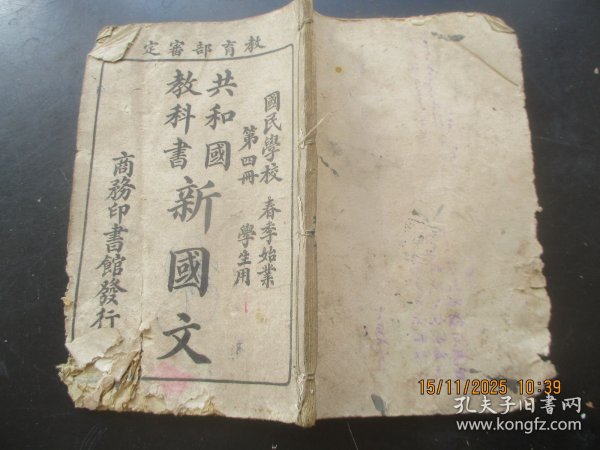 教育部審定
國民學校 春季始業
第四冊 學生用
共和國
教科書
新國文
商務印書館發行
15/11/2025 10:39
孔夫子旧书网
www.kongfz.com